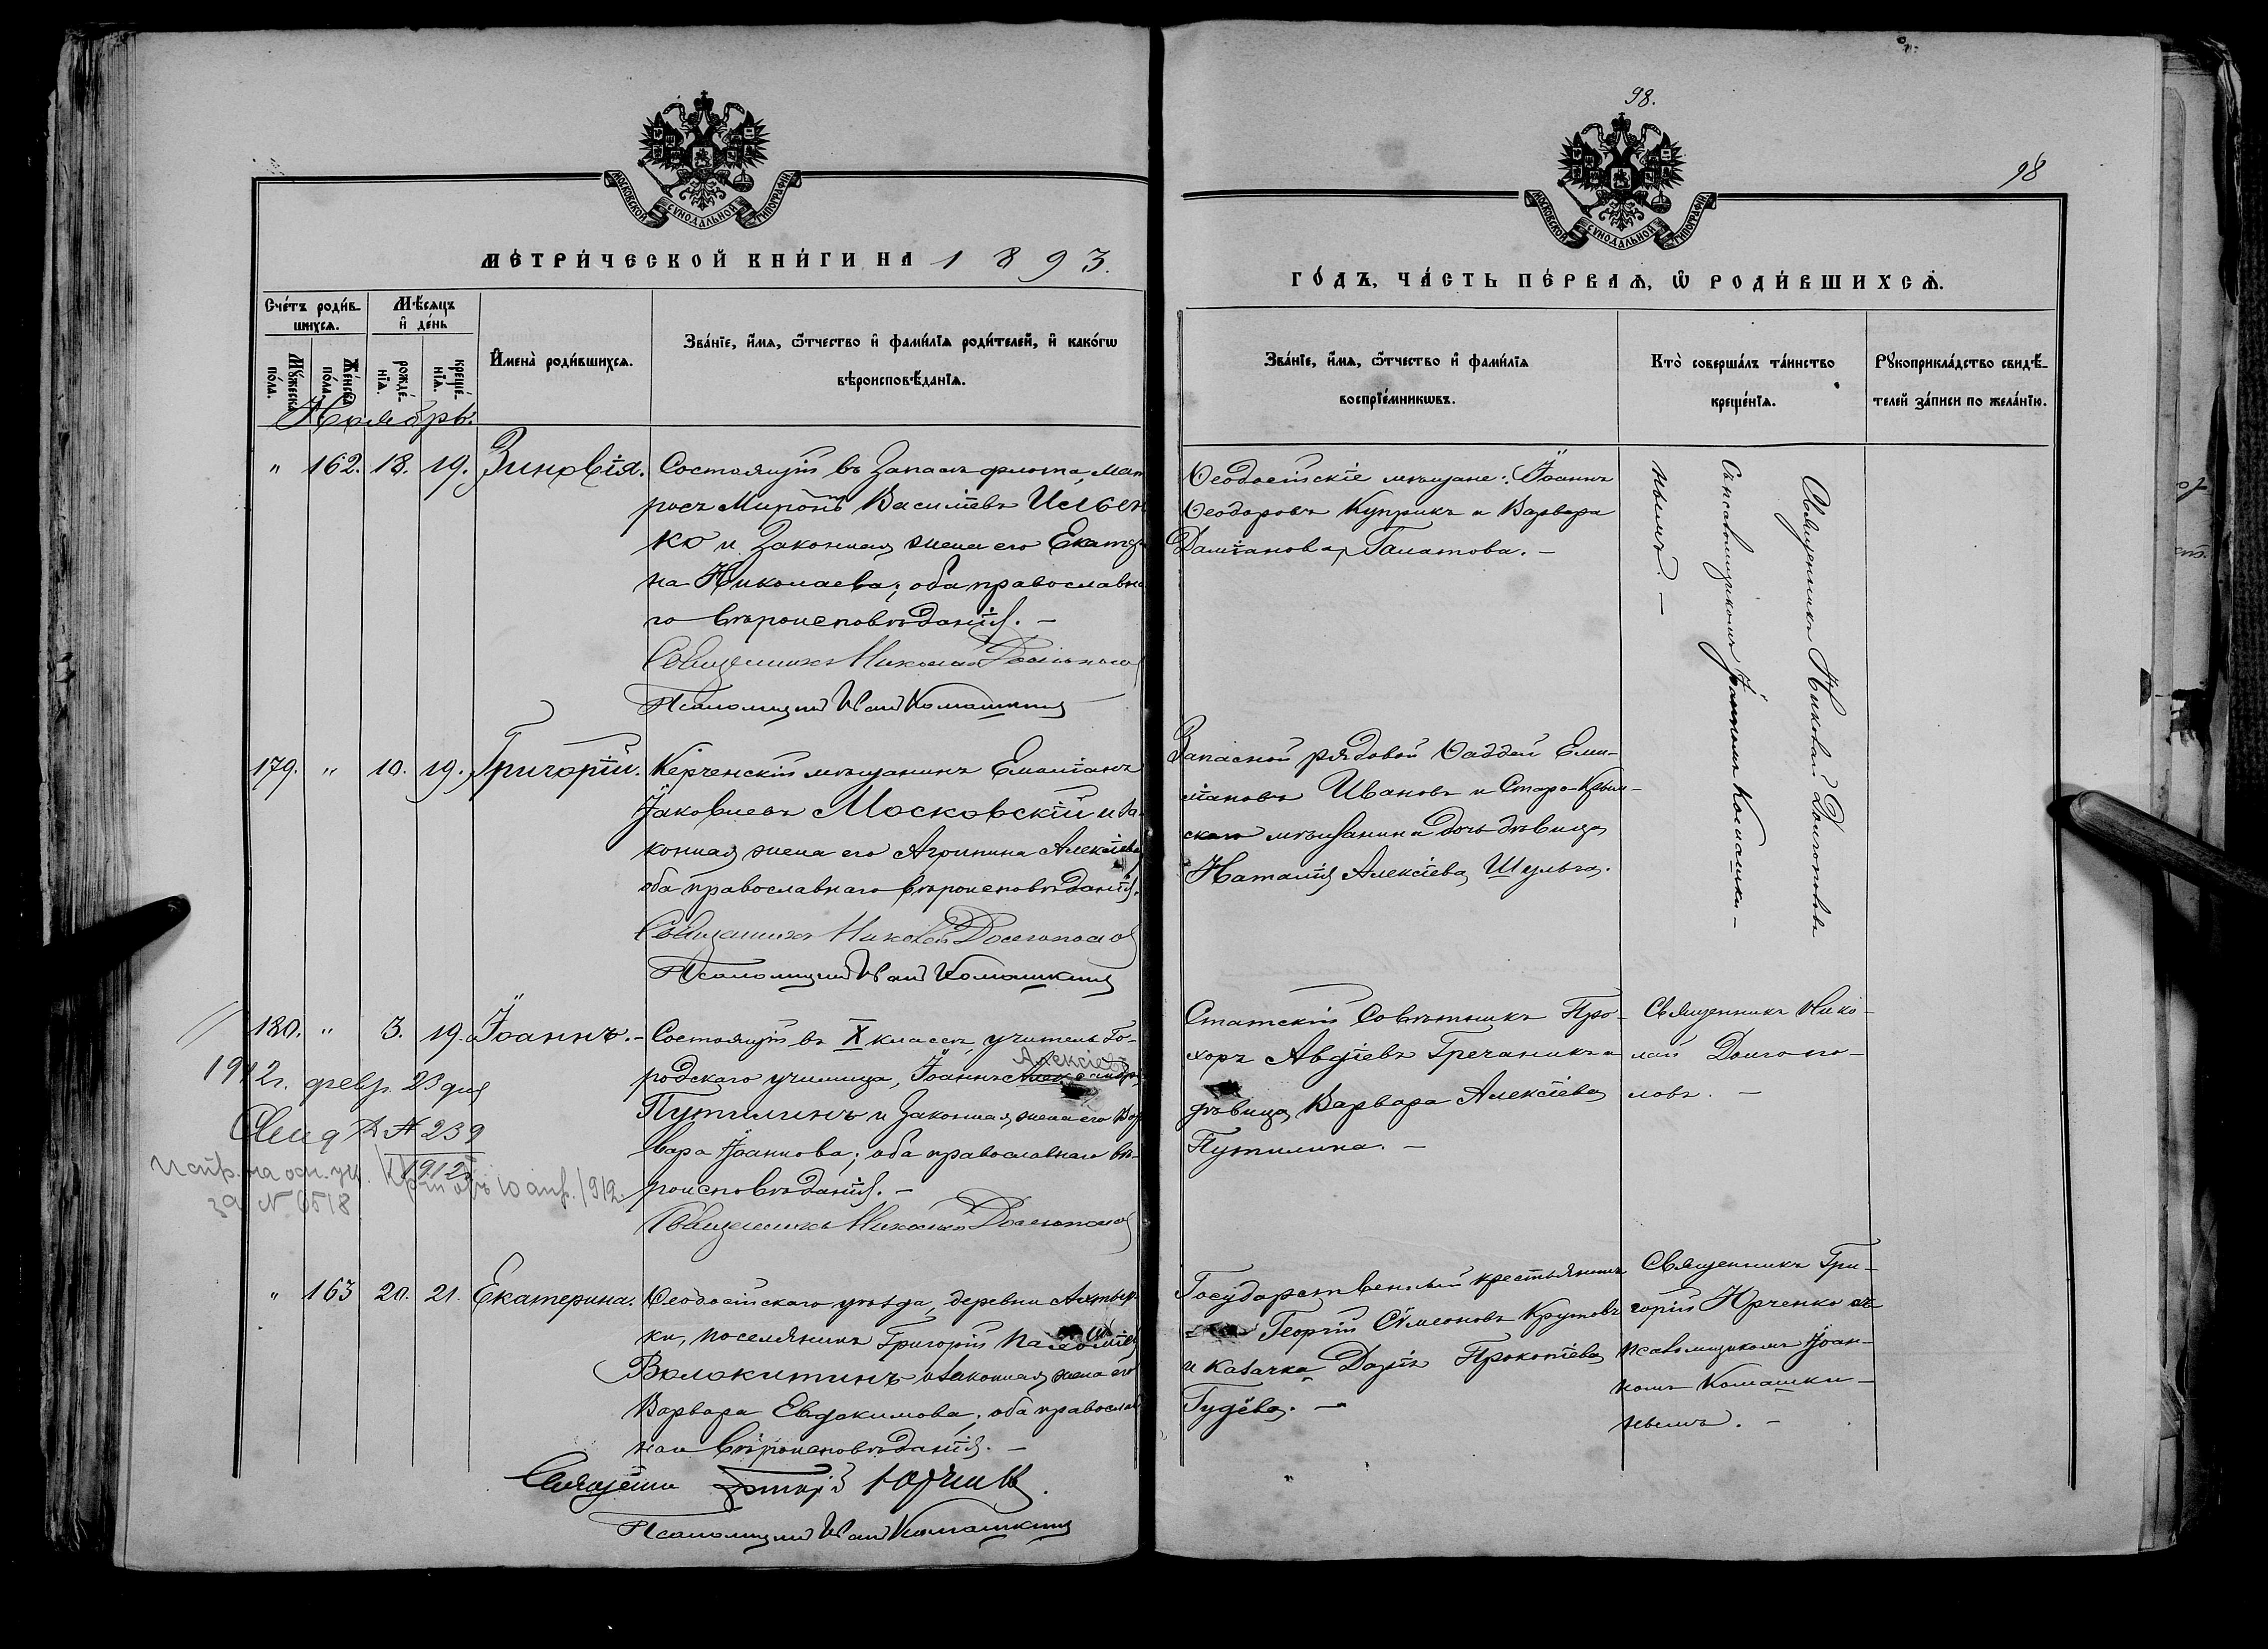 98.
98
МОСКОВСКОЙ СѴНОДАЛЬНОЙ ТИПОГРАФІИ
МОСКОВСКОЙ СѴНОДАЛЬНОЙ ТИПОГРАФІИ
МЕТРИЧЕСКОЙ КНИГИ НА 1893.
Счетъ родив-
шихся.
Мужеска пола.
Женска пола.
Мѣсяцъ и день
рожде-нія.
креще-нія.
Имена родившихся.
Званіе, имя, отчество и фамилія родителей, и какогѡ
вѣроисповѣданія.
Ноябрь.
" 162. 18. 19. Зиновія.
Состоящій въ запасѣ флота, мат
росъ Миронъ Василіевъ Ильен
ко и законная жена его Екатери
на Николаева; оба православна
го вѣроисповѣданія. —
Священникъ Николай Долгополов
Псаломщикъ Иван Комашкин
179. " 10. 19. Григорій.
Керченскій мѣщанинъ Емиліанъ
Іаковлевъ Московскій и за-
конная жена его Агрипина Алексіева
оба православнаго вѣроисповѣданія.
Священникъ Николай Долгополов
Псаломщикъ Иван Комашкин
180. " 3. 19. Іоаннъ. —
Состоящій въ X классѣ, учитель Го-
Алексіевъ
родскаго училища, Іоаннъ
Путилинъ и законная жена его Вар
вара Іоаннова; оба православнаго вѣ-
роисповѣданія. —
Священникъ Николай Долгополов
1912 г. февр. 23 дня
№ 239
1912
Испр. на осн. ук. 10 апр. 1912.
за № 6518
" 163 20. 21. Екатерина.
Ѳеодосійскаго уѣзда, деревни
ки, поселянинъ Григорій
Волокитинъ и законная жена его
Варвара Евдокимова; оба православ
наго вѣроисповѣданія. —
Священникъ Григорій Юрченко
Псаломщикъ Иван Комашкин
ГОДЪ, ЧАСТЬ ПЕРВАЯ, Ѡ РОДИВШИХСЯ.
Званіе, имя, отчество и фамилія
воспріемникѡвъ.
Кто совершалъ таинство
крещенія.
Рукоприкладство свидѣ-
телей записи по желанію.
Ѳеодосійскіе мѣщане: Іоаннъ
Ѳеодоровъ Куприкъ и Варвара
Даміанова Галатова. —
Священникъ Николай Долгополовъ
съ псаломщикомъ Іоанномъ Комашки-
нымъ. —
Запасной рядовой Ѳаддей Еми-
ліановъ Ивановъ и Старо-Крым-
скаго мѣщанина дочь дѣвица
Наталія Алексіева Шульга.
Статскій Совѣтникъ Про-
хоръ Авдіевъ Гречаникъ и
дѣвица Варвара Алексіева
Путилина. —
Священникъ Нико-
лай Долгопо-
ловъ. —
Государственный крестьянинъ
Георгій Сѵмеоновъ Крутовъ
и казачка Дарія Прокопіева
Гудѣва. —
Священникъ Гри-
горій Юрченко съ
псаломщикомъ Іоан-
номъ Комашки-
нымъ. —